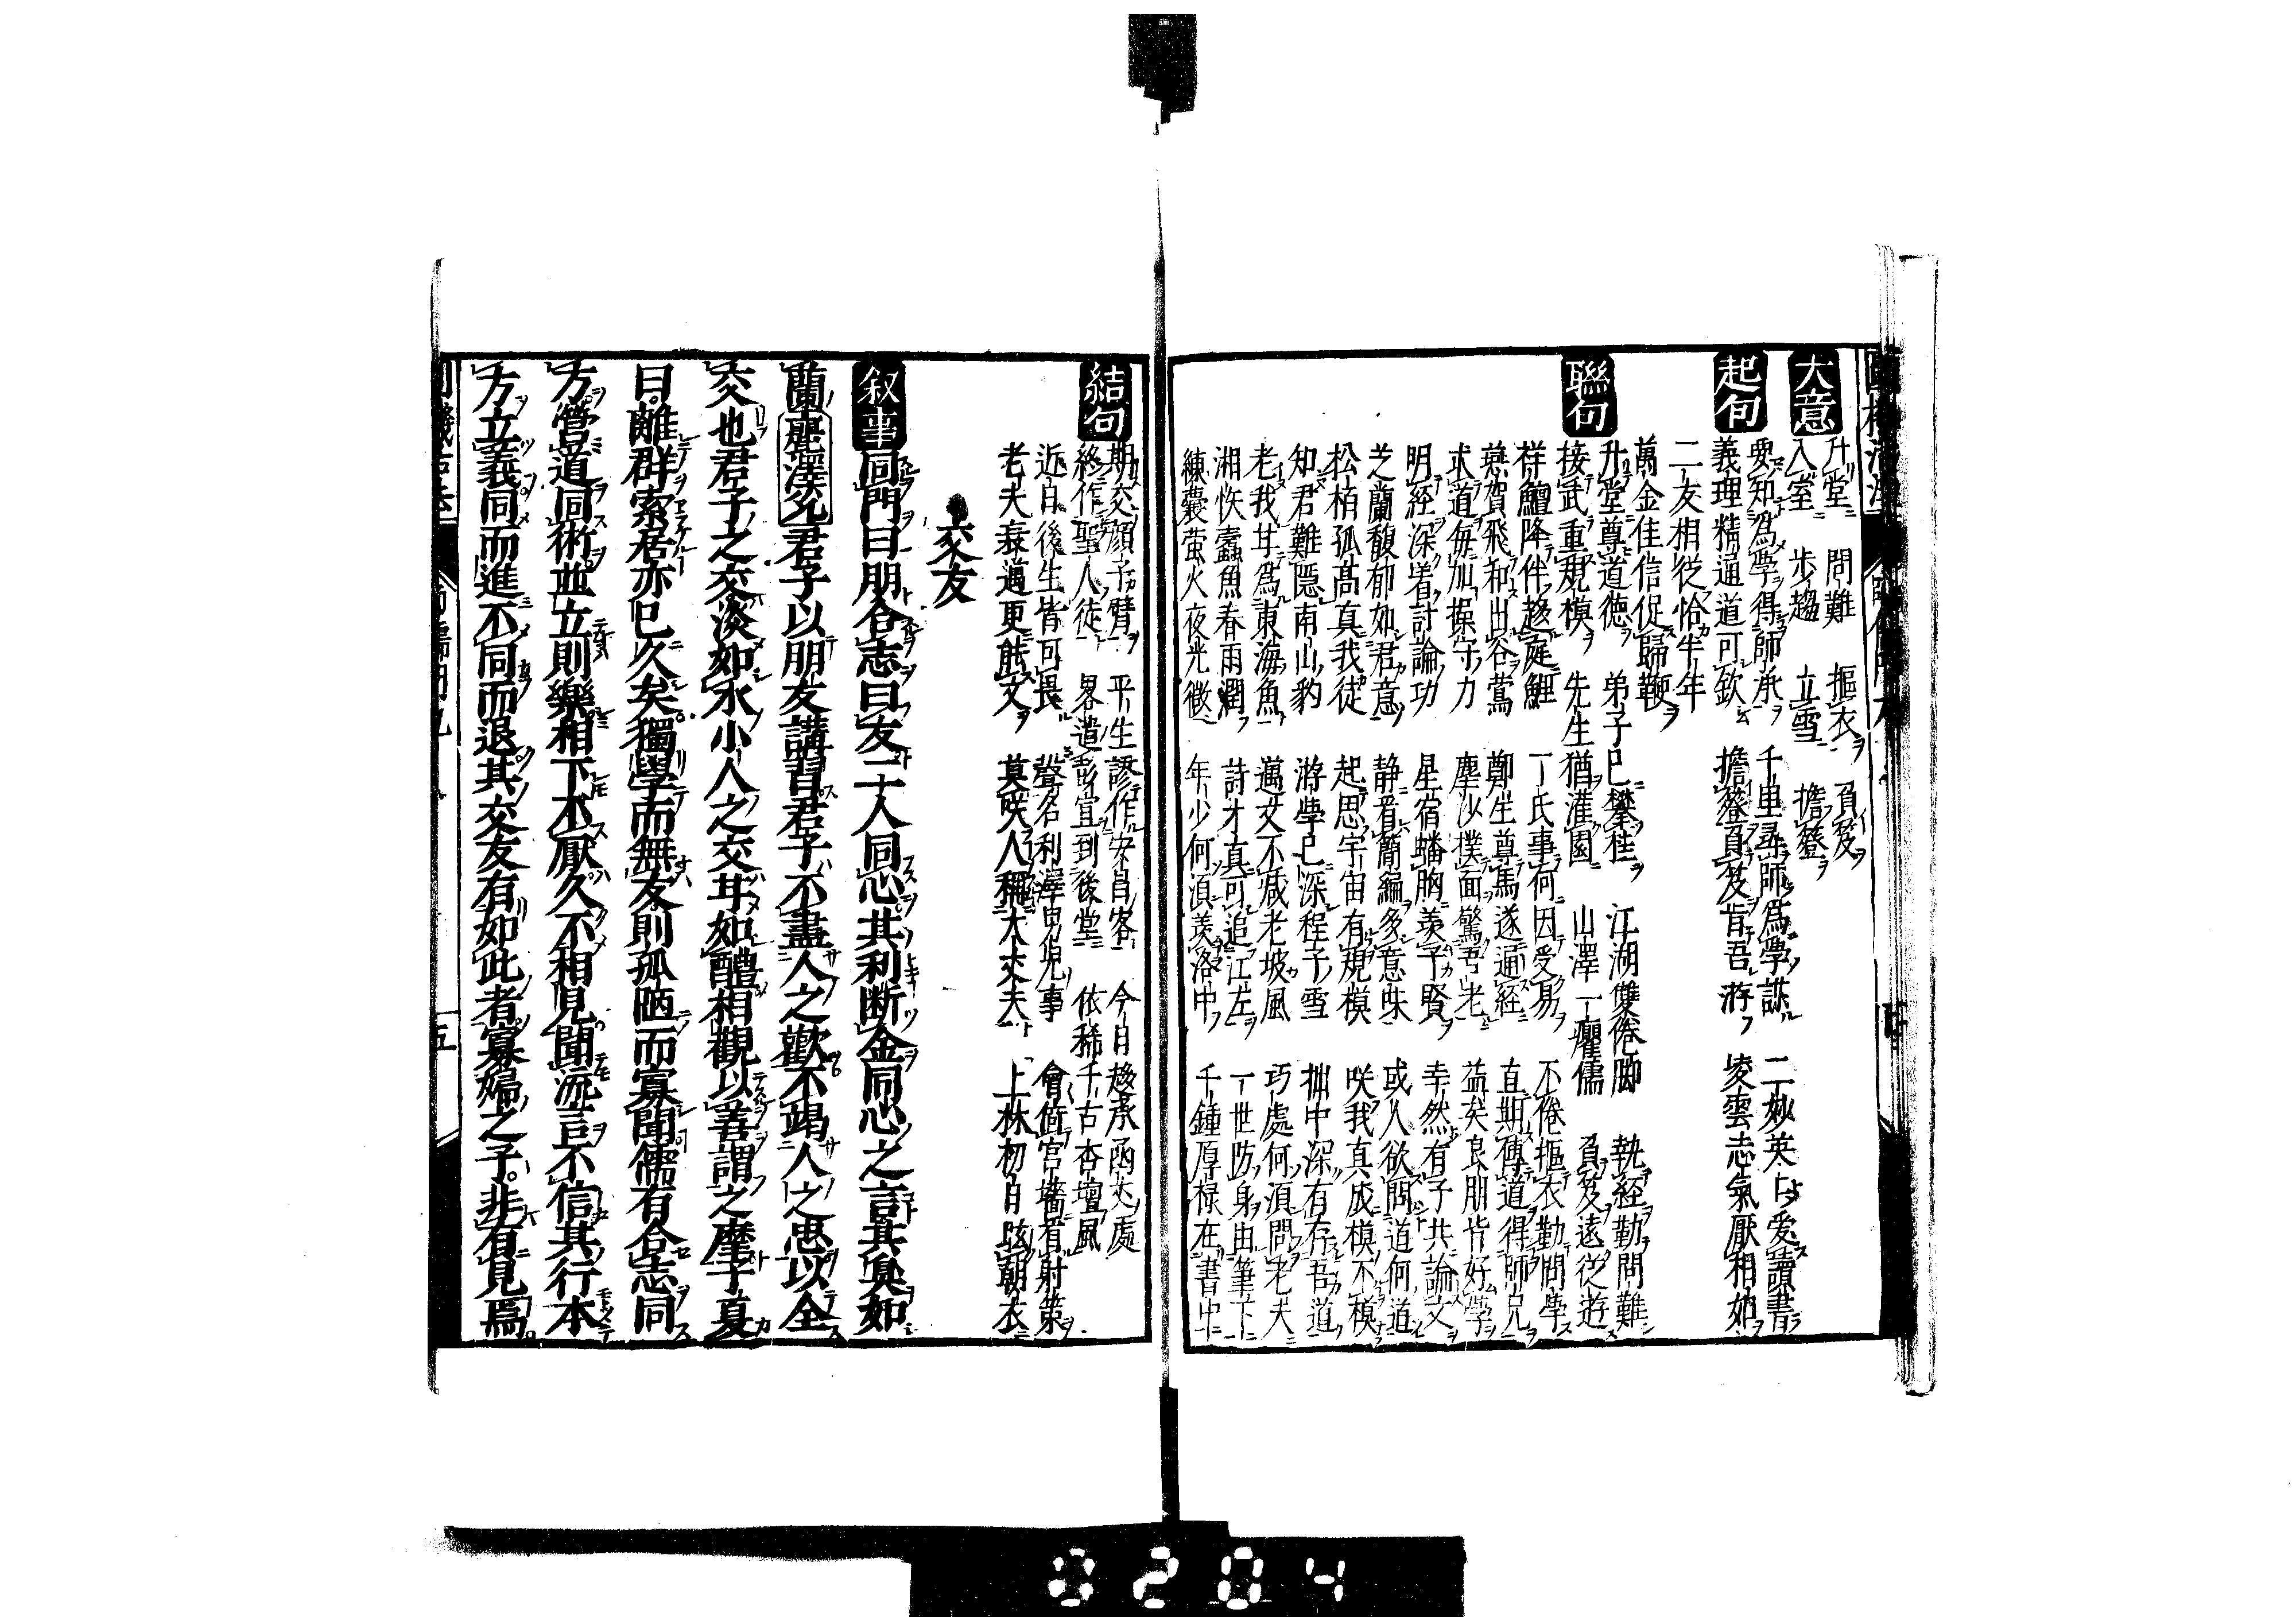 大意
升堂 問難 摳衣 負笈
入室 歩趨 立雪 擔簦
要知為學得師承 千里尋師為學謀 二妙英上愛讀書
起句
義理精通道可欽 擔簦負笈肯吾游 凌雲志氣厭相如
二友相從恰半年
萬金佳信促歸鞭
聯句
升堂尊道德 弟子已攀桂 江湖雙倦脚 執經勤問難
接武重規模 先生猶灌園 山澤一癯儒 負笈遠從遊
祥鱣降伴趍庭鯉 丁氏事何因受易 不倦摳衣勤問學
慕賀飛和出谷鶯 鄭生尊馬遂通經 直期傳道得師兄
求道毎加操守力 塵沙撲面驚吾老 益矣良朋皆好學
明經深着討論功 星宿蟠胸羨子賢 幸然有子共論文
芝蘭馥郁如君意 静看簡編多意味 或人欲問道何道
松栢孤高真我徒 起思宇宙有規模 咲我真成模不模
知君難隱南山豹 游學已深程子雪 拙中深有存吾道
老我甘為東海魚 邁文不减老坡風 巧處何湏問老天
湘帙蠹魚春雨潤 詩才真可追江左 一世防身由筆下
練囊萤火夜光微 年少何湏羨洛中 千鍾厚禄在書中
結句
期交顔子臂 平生謬作安昌客 今日趍承函丈處
終作聖人徒 畧遣彭宣到後堂 依稀千古杏壇風
近日後生皆可畏 聲名利澤男兒事 會倚宫墻看射策
老夫衰邁更能文 莫咲人稱大丈夫 上林初日眩朝衣
交友
叙事同門曰朋合志曰友二人同心其利断金同心之言其臭如
蘭麗澤兌君子以朋友講習君子不盡人之歡不竭人之忠以全
交也君子之交淡如水小人之交甘如醴相觀以善謂之摩子夏
曰離群索居亦已久矣獨學而無友則孤陋而寡聞儒有合志同
方營道同術並立則樂相下不厭久不相見聞流言不信其行本
方立義同而進不同而退其交友有如此者寡婦之子非有見焉
五
0204